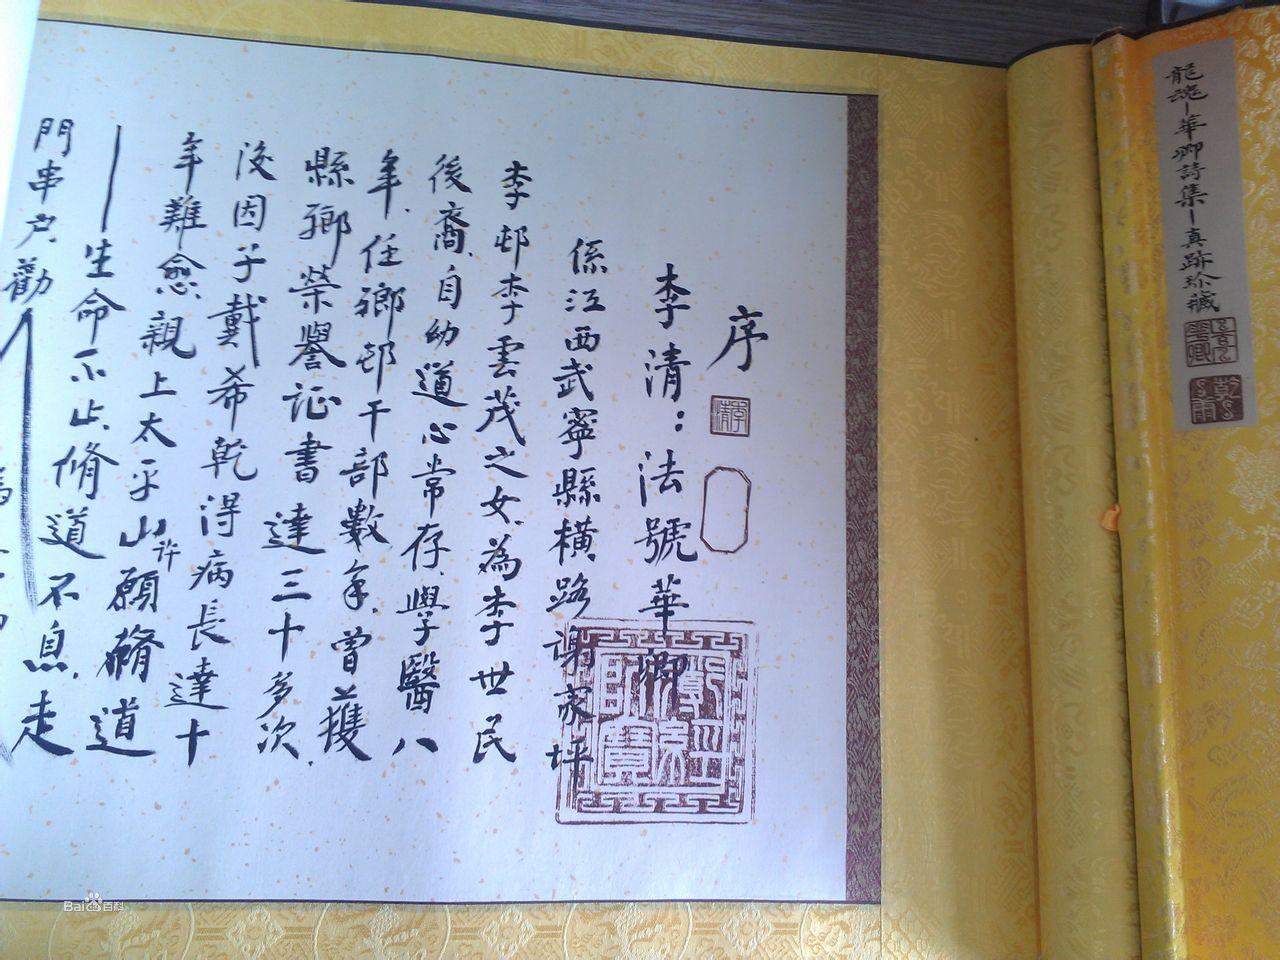 龍魂–華卿詩集–真跡珍藏
序
李清
李清：法號華卿
係江西武寧縣橫路謝家坪
李邨李雲茂之女、為李世民
後裔、自幼道心常存、學醫八
年、任鄉邨干部數年、曾獲
縣鄉榮譽证書達三十多次、
後因子戴希乾得病長達十
年難愈、親上太平山許願脩道
一生命不止、脩道不息、走
門串户、勸
Bai百科